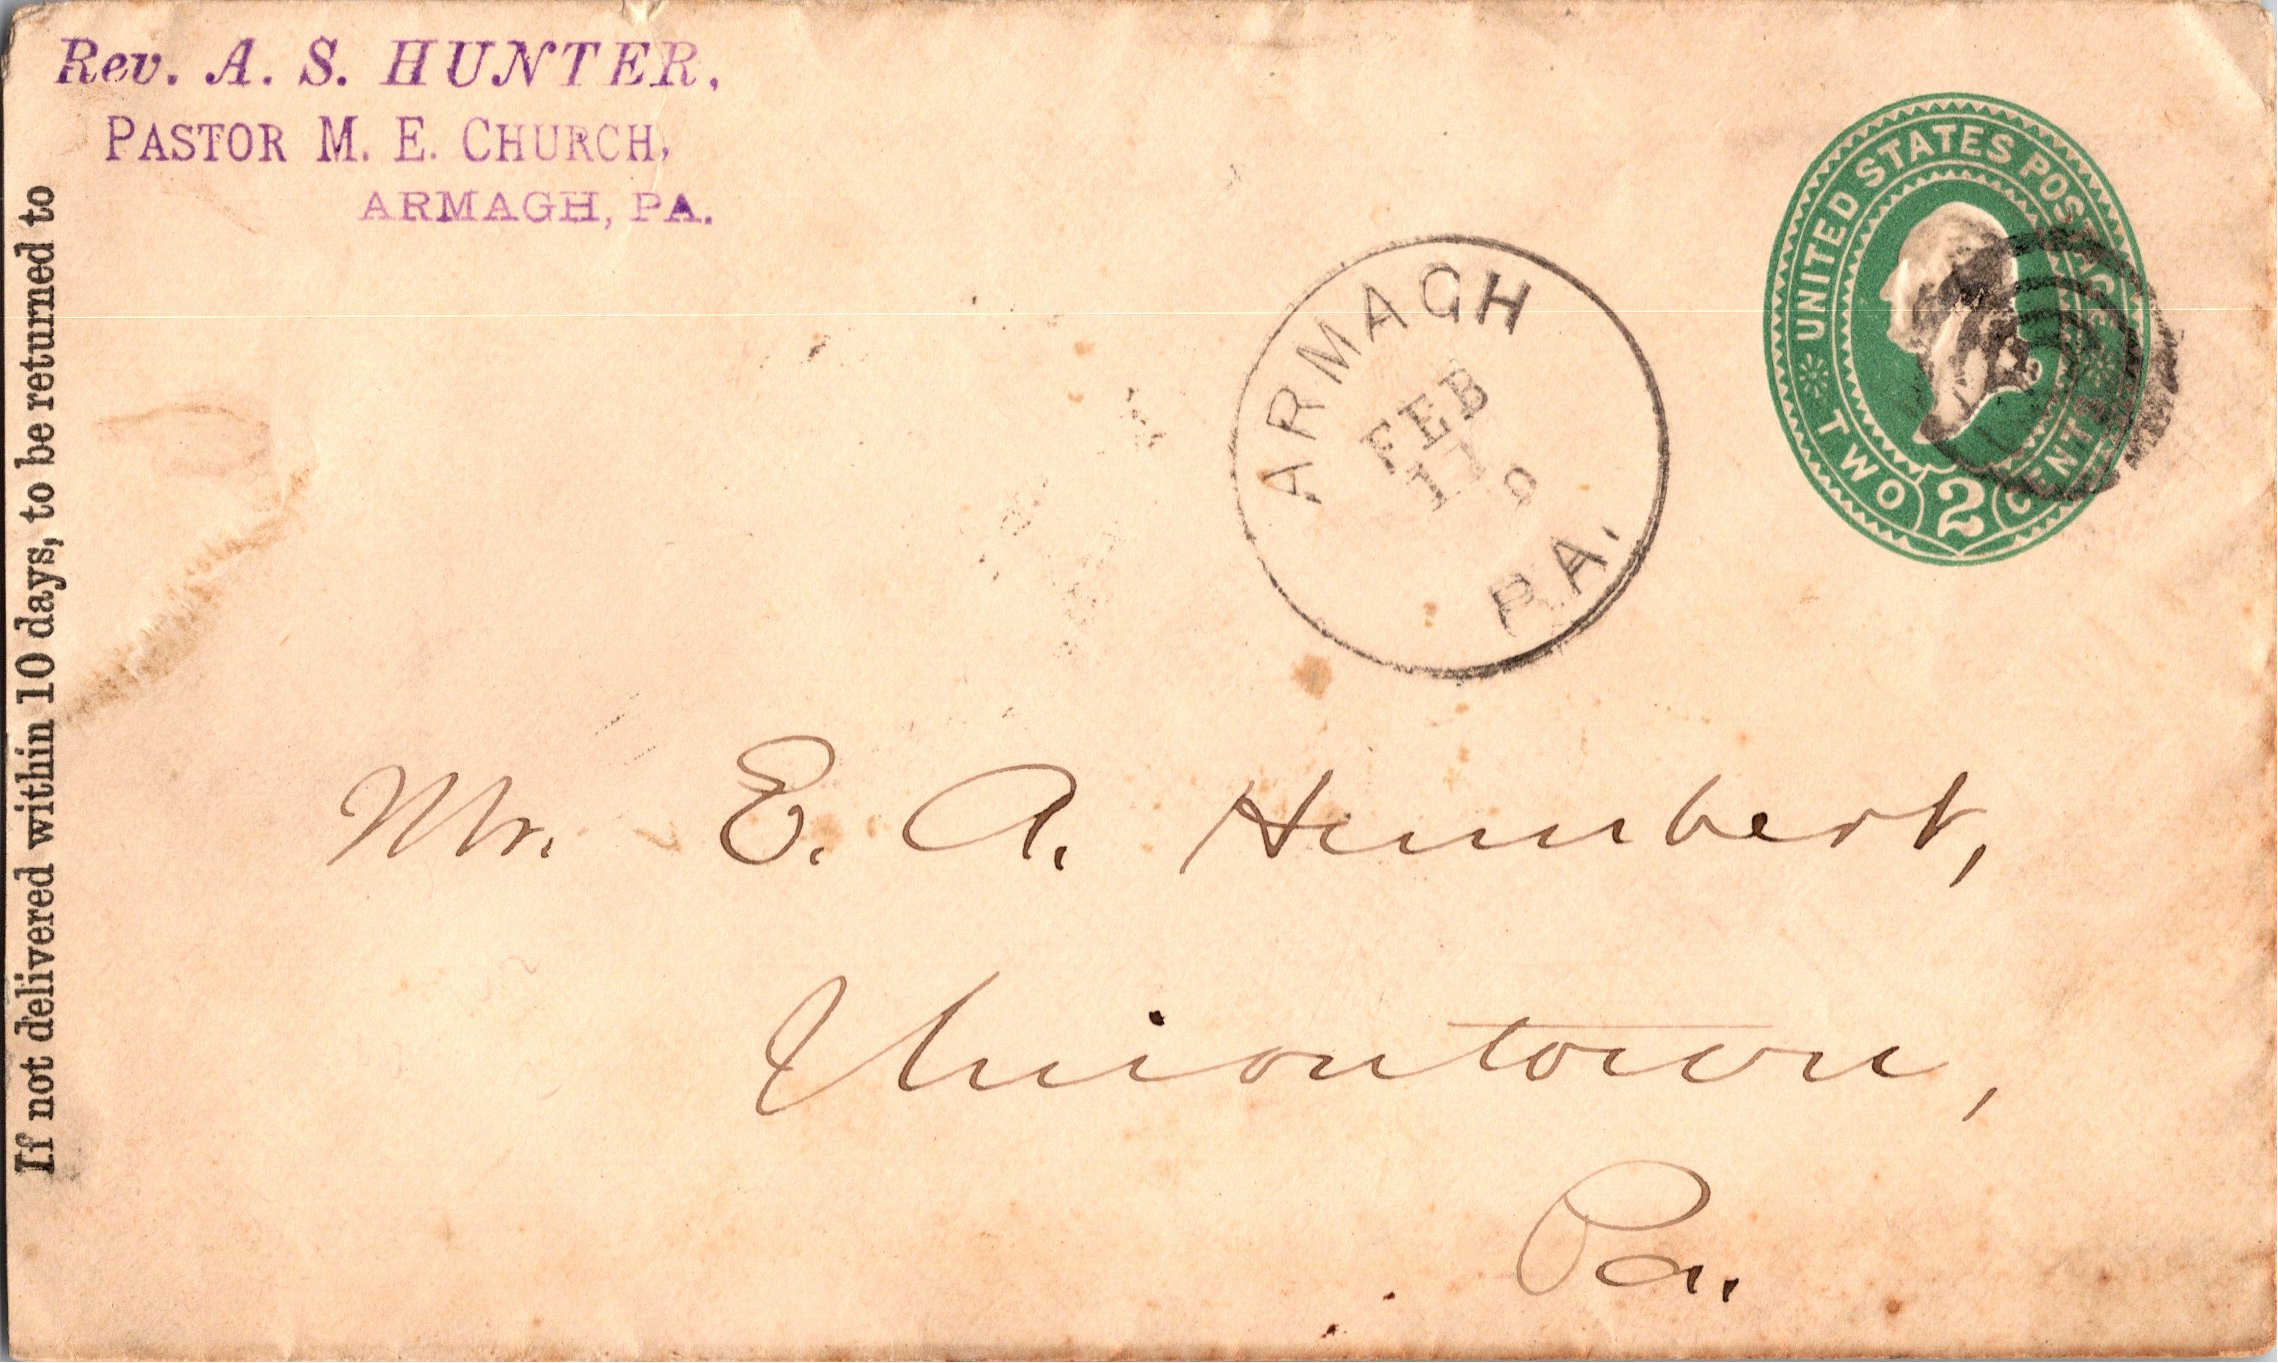 Rev. A. S. HUNTER,
PASTOR M. E. CHURCH,
ARMAGH, PA.
If not delivered within 10 days, to be returned to
UNITED STATES POSTAGE
TWO 2 CENTS
ARMAGH
FEB
PA.
Mr. E. A. Humbert,
Uniontown,
Pa.